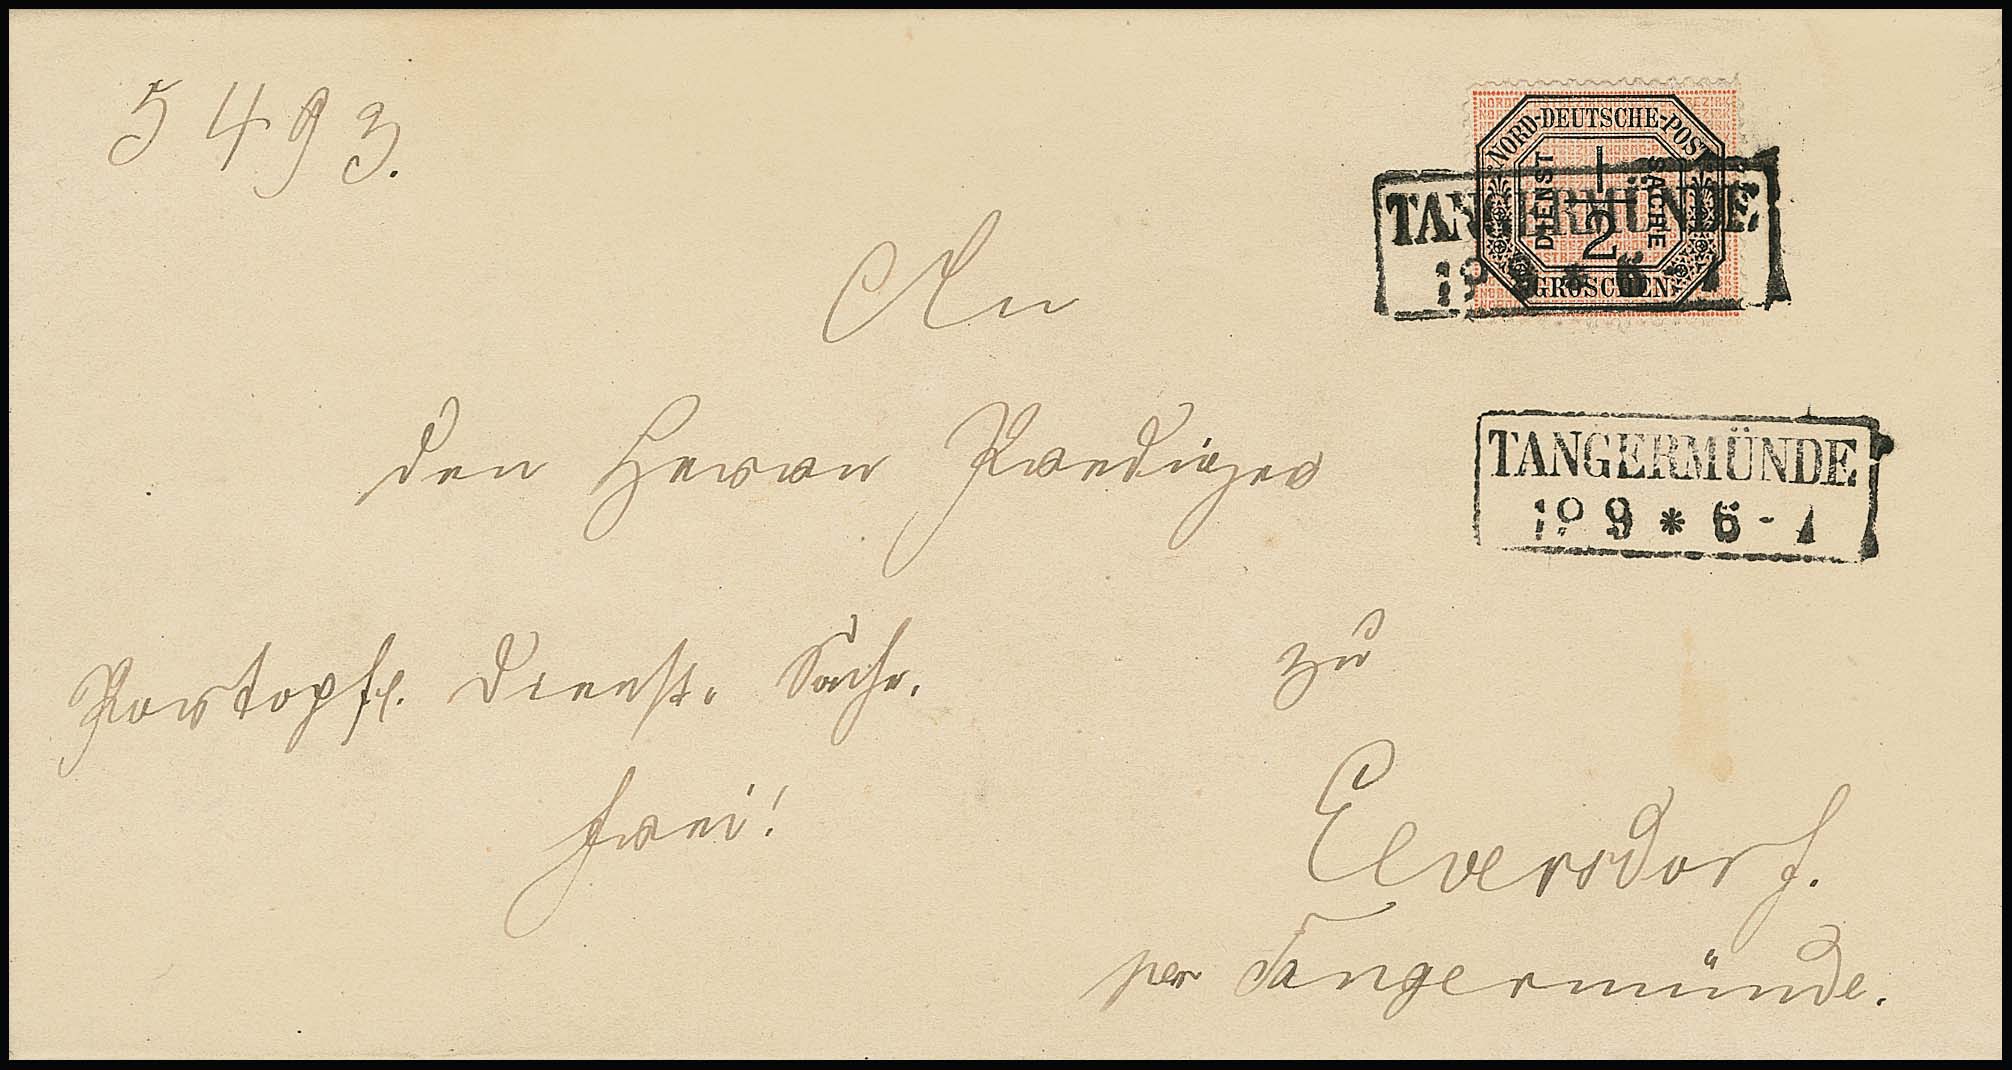 5493.
NORD-DEUTSCHE-POST
DIENST
1/2
SACHE
GROSCHEN
TANGERMÜNDE
An
den Herrn Prediger
TANGERMÜNDE
9 * 6 - 1
Portopfl. Dienst. Sache.
zu
frei!
Elversdorf.
per Tangermünde.